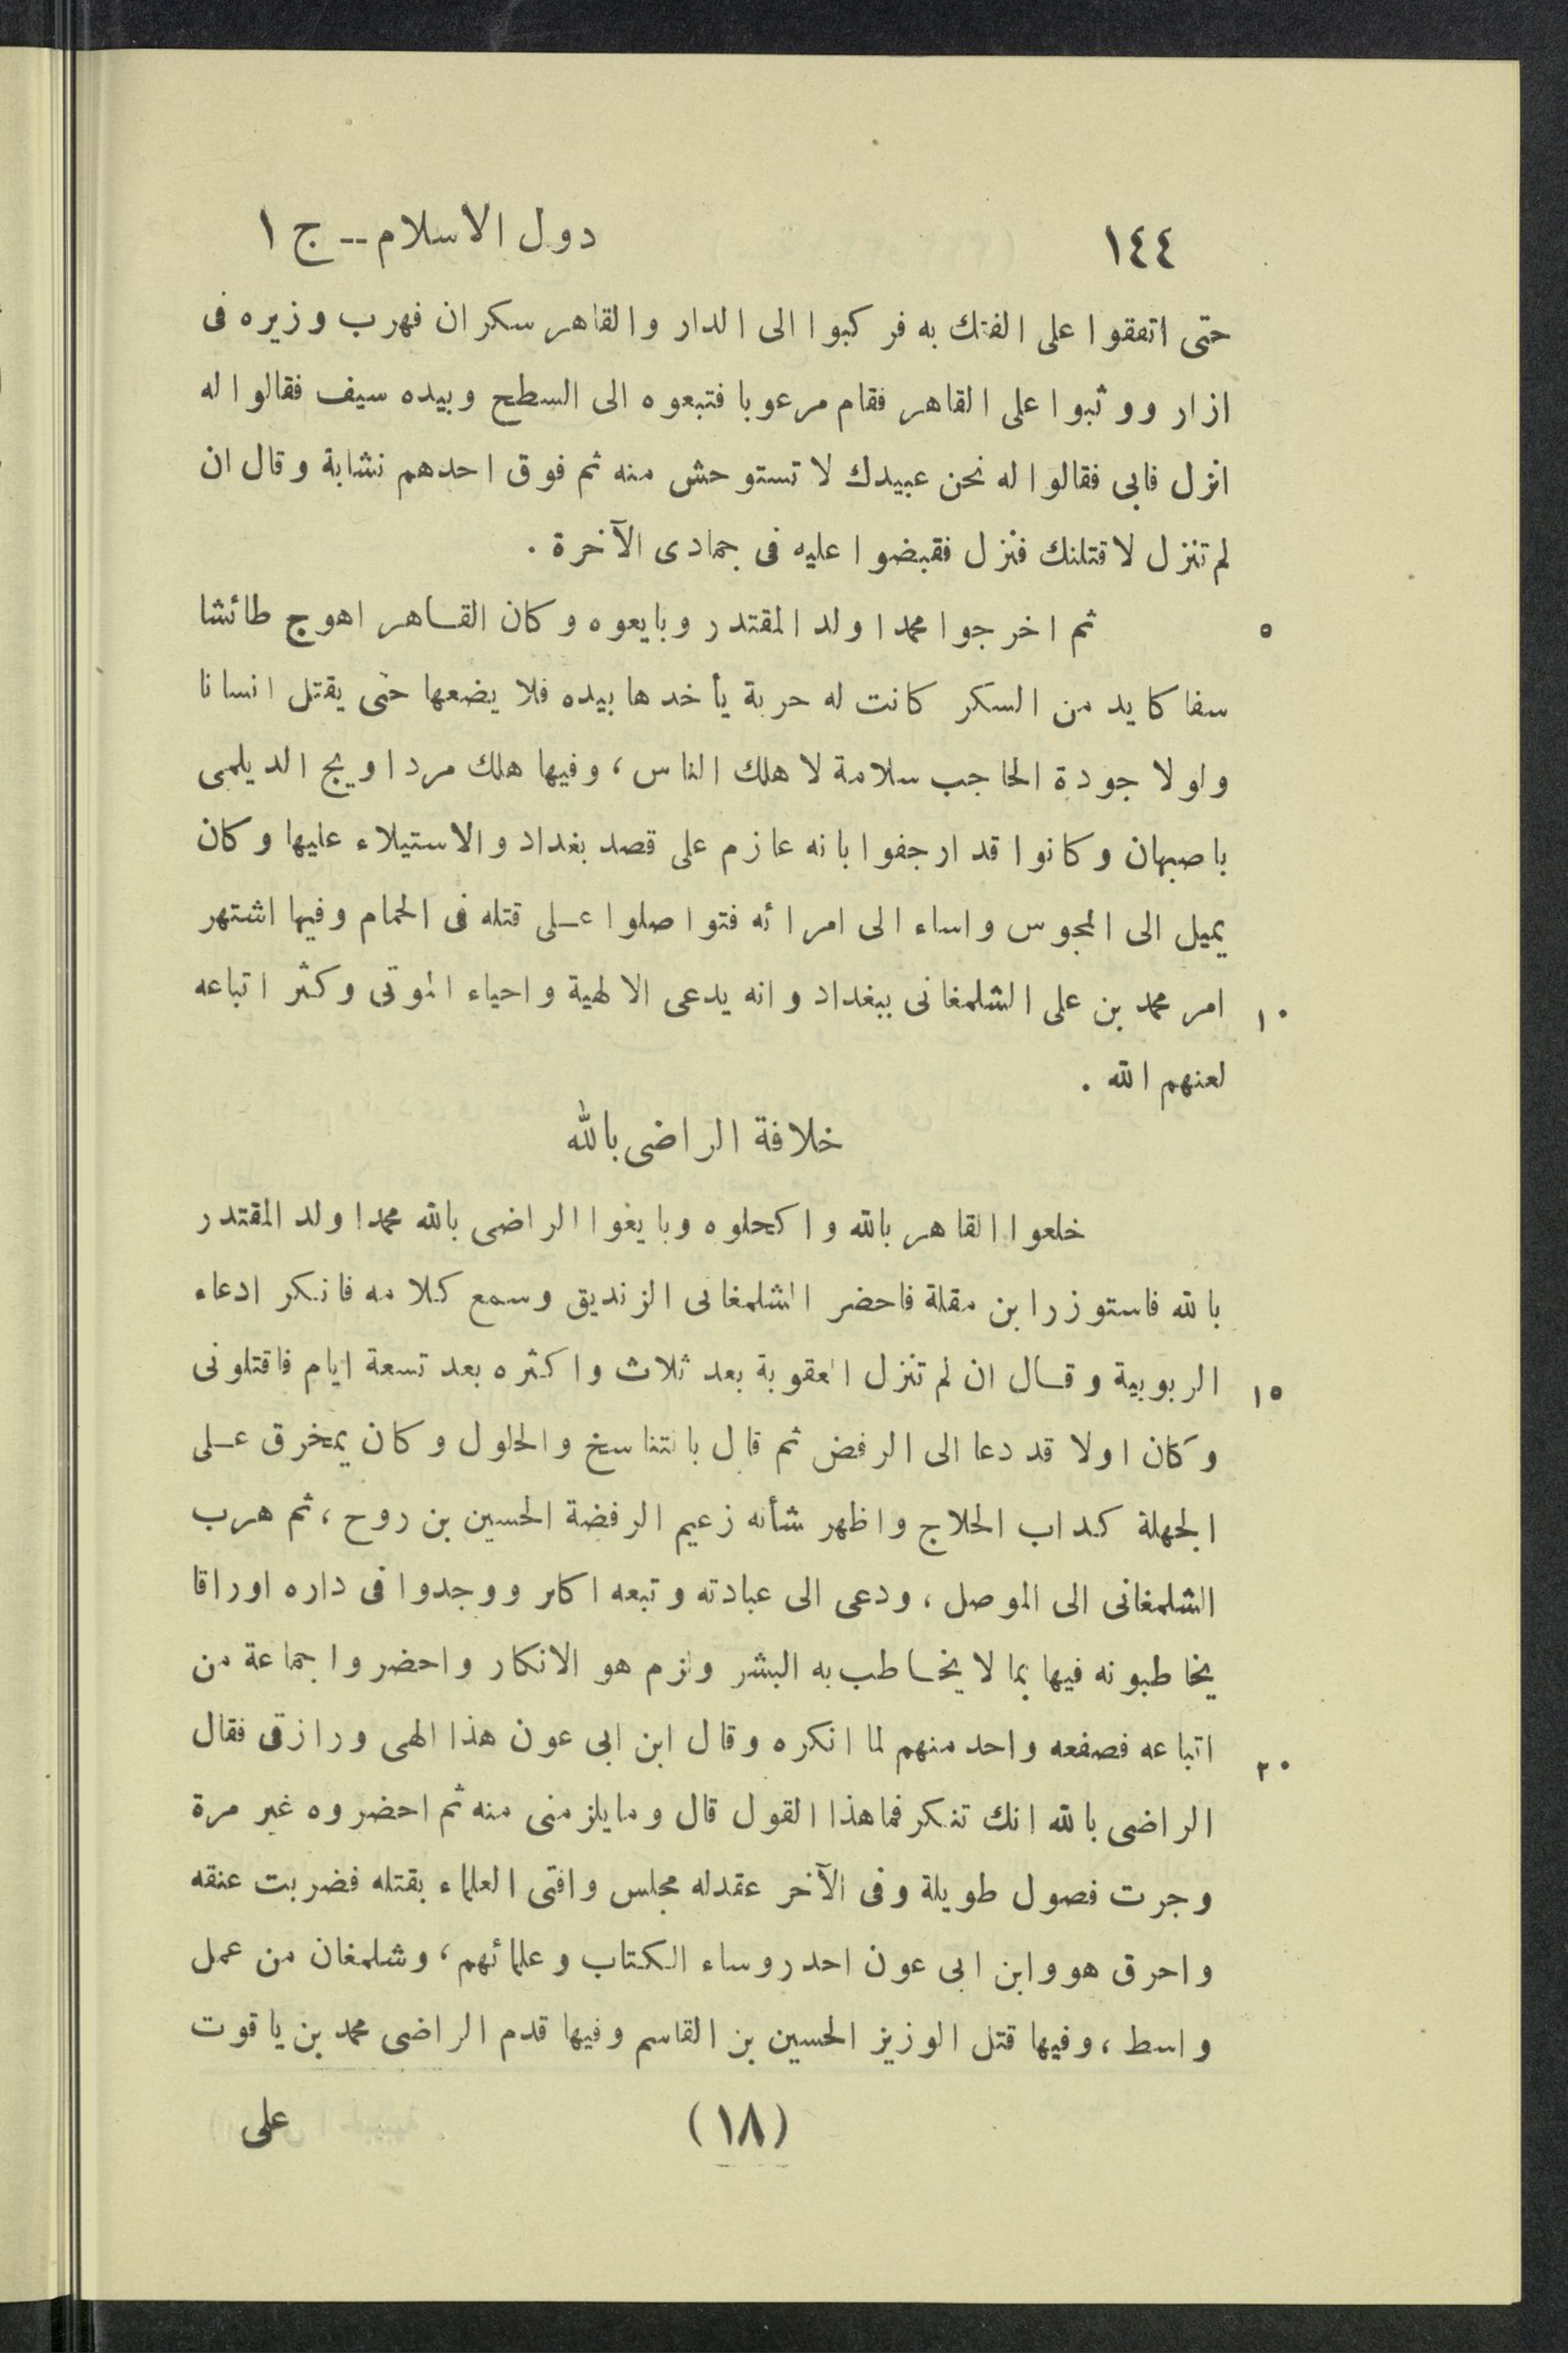 ١٤٤ دول الاسلام -- ج ١
حتى اتفقوا على الفتك به فركبوا الى الدار والقاهر سكران فهرب وزيره فى
ازار ووثبوا على القاهر فقام مرعوبا فتبعوه الى السطح وبيده سيف فقالوا له
انزل فابى فقالوا له نحن عبيدك لا تستوحش منه ثم فوق احدهم نشابة وقال ان
لم تنزل لاقتلنك فنزل فقبضوا عليه فى جمادى الآخرة .
٥ ثم اخرجوا محمدا ولد المقتدر وبايعوه وكان القاهر اهوج طائشا
سفاكا يد من السكر كانت له حربة يأخدها بيده فلا يضعها حتى يقتل انسانا
ولولا جودة الحاجب سلامة لاهلك الناس ، وفيها هلك مرداويج الديلمى
باصبهان وكانوا قد ارجفوا بانه عازم على قصد بغداد والاستيلاء عليها وكان
يميل الى المجوس واساء الى امرائه فتواصلوا على قتله فى الحمام وفيها اشتهر
١٠ امر محمد بن على الشلمغانى ببغداد وانه يدعى الالهية واحياء الموتى وكثر اتباعه
لعنهم الله .
خلافة الراضى بالله
خلعوا القاهر بالله واكحلوه وبايغوا الراضى بالله محمدا ولد المقتدر
بالله فاستوزر ابن مقلة فاحضر الشلمغانى الزنديق وسمع كلامه فانكر ادعاء
١٥ الربوبية وقال ان لم تنزل العقوبة بعد ثلاث واكثره بعد تسعة ايام فاقتلونى
وكان اولا قد دعا الى الرفض ثم قال بالتناسخ والحلول وكان يمخرق على
الجهلة كداب الحلاج واظهر شأنه زعيم الرفضة الحسين بن روح ، ثم هرب
الشلمغانى الى الموصل ، ودعى الى عبادته وتبعه اكابر ووجدوا فى داره اوراقا
يخاطبونه فيها بما لا يخاطب به البشر ولزم هو الانكار واحضروا جماعة من
٢٠ اتباعه فصفعه واحد منهم لما انكره وقال ابن ابى عون هذا الهى ورازقى فقال
الراضى بالله انك تنكر فما هذا القول قال وما يلزمنى منه ثم احضروه غير مرة
وجرت فصول طويلة وفى الآخر عقدله مجلس وافتى العلماء بقتله فضربت عنقه
واحرق هو وابن ابى عون احد روساء الكتاب وعلمائهم ، وشلمغان من عمل
واسط ، وفيها قتل الوزيز الحسين بن القاسم وفيها قدم الراضى محمد بن ياقوت
(١٨) على